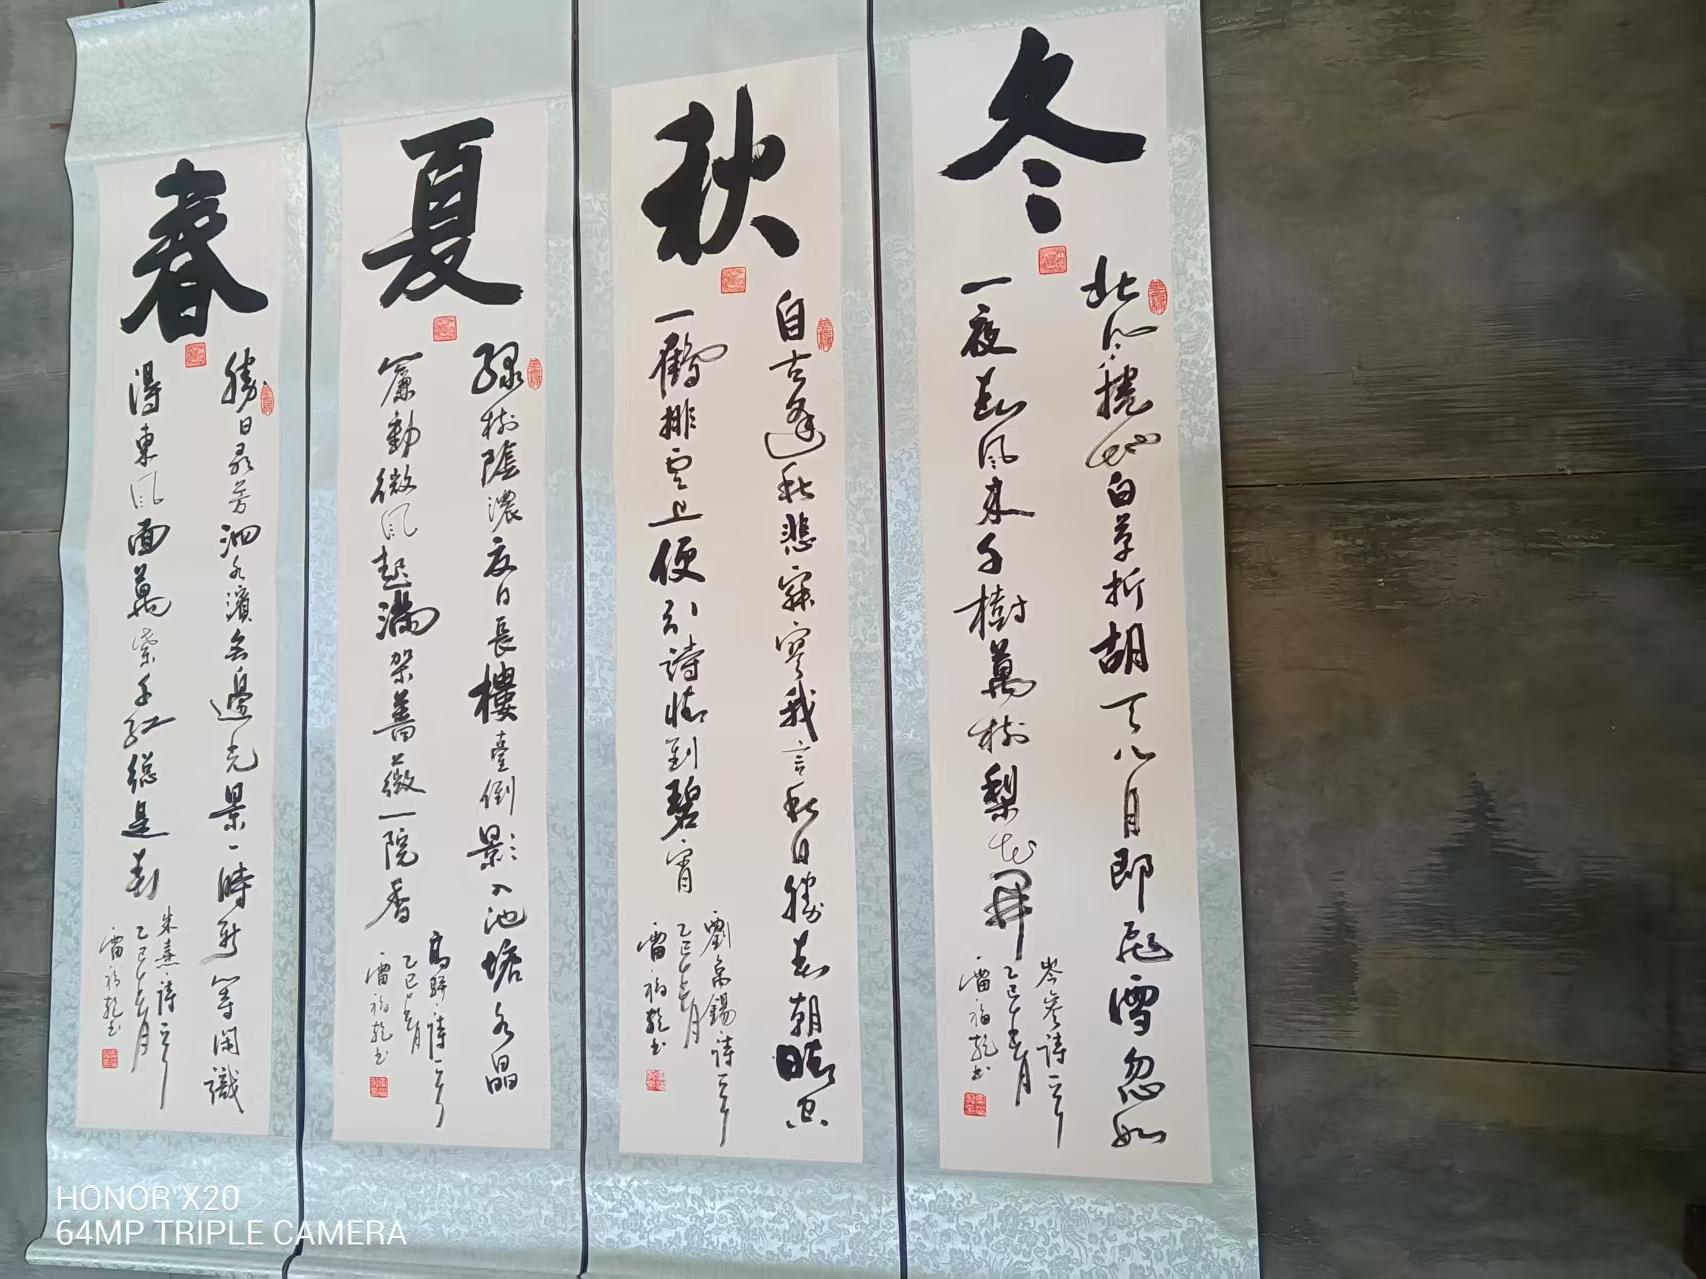 春
勝日尋芳泗水濱無邊光景一時新等閑識
得東風面萬紫千紅總是春
朱熹詩一首
乙巳年月
雷福乾書
夏
緑樹陰濃夏日長樓臺倒影入池塘水晶
簾動微風起滿架薔薇一院香
高駢詩一首
乙巳年月
雷福乾書
秋
自古逢秋悲寂寥我言秋日勝春朝晴空
一鶴排雲上便引詩情到碧宵
劉禹錫詩一首
乙巳年月
雷福乾書
冬
北風捲地白草折胡天八月即飛雪忽如
一夜春風來千樹萬樹梨花開
岑參詩一首
乙巳年月
雷福乾書
HONOR X20
64MP TRIPLE CAMERA